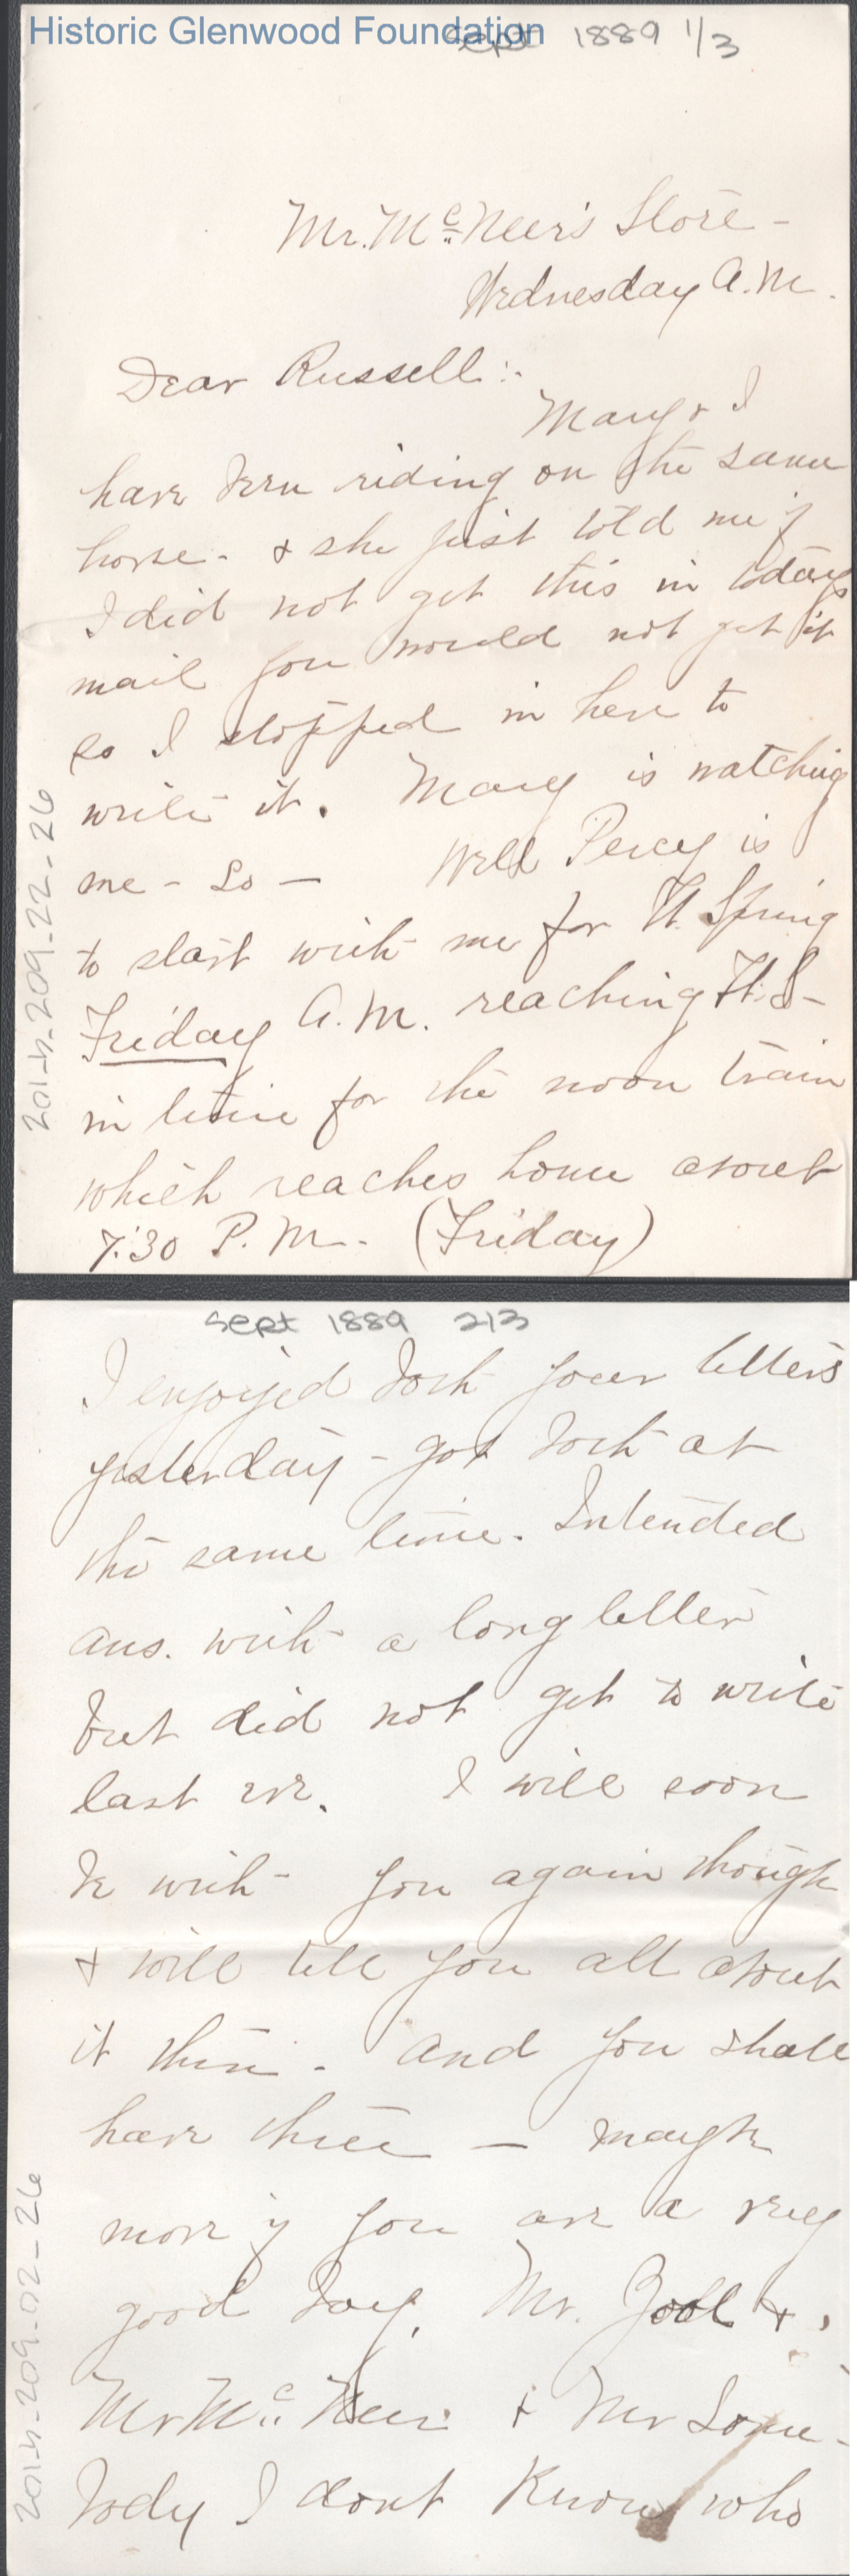 Historic Glenwood Foundation
Sept 1889 1/3
Mr. McNeer's Store -
Wednesday A.M.
Dear Russell:-
Mary & I
have been riding on the same
horse - & she just told me if
I did not get this in todays
mail you would not get it
so I stopped in here to
write it. Mary is watching
me - so - Well Percy is
to start with me for Ft. Spring
Friday A.M. reaching Ft. S-
in time for the noon train
which reaches home about
7:30 P.M. (Friday)
2014.209.22-26
Sept 1889 2/3
I enjoyed both your letters
yesterday - got both at
the same time. Intended
ans. with a long letter
but did not get to write
last eve. I will soon
be with you again though
& will tell you all about
it then. And you shall
have three - maybe
more if you are a very
good boy. Mr. &
Mr McNeer & Mr Some-
body I dont know who
2014.209.02-26